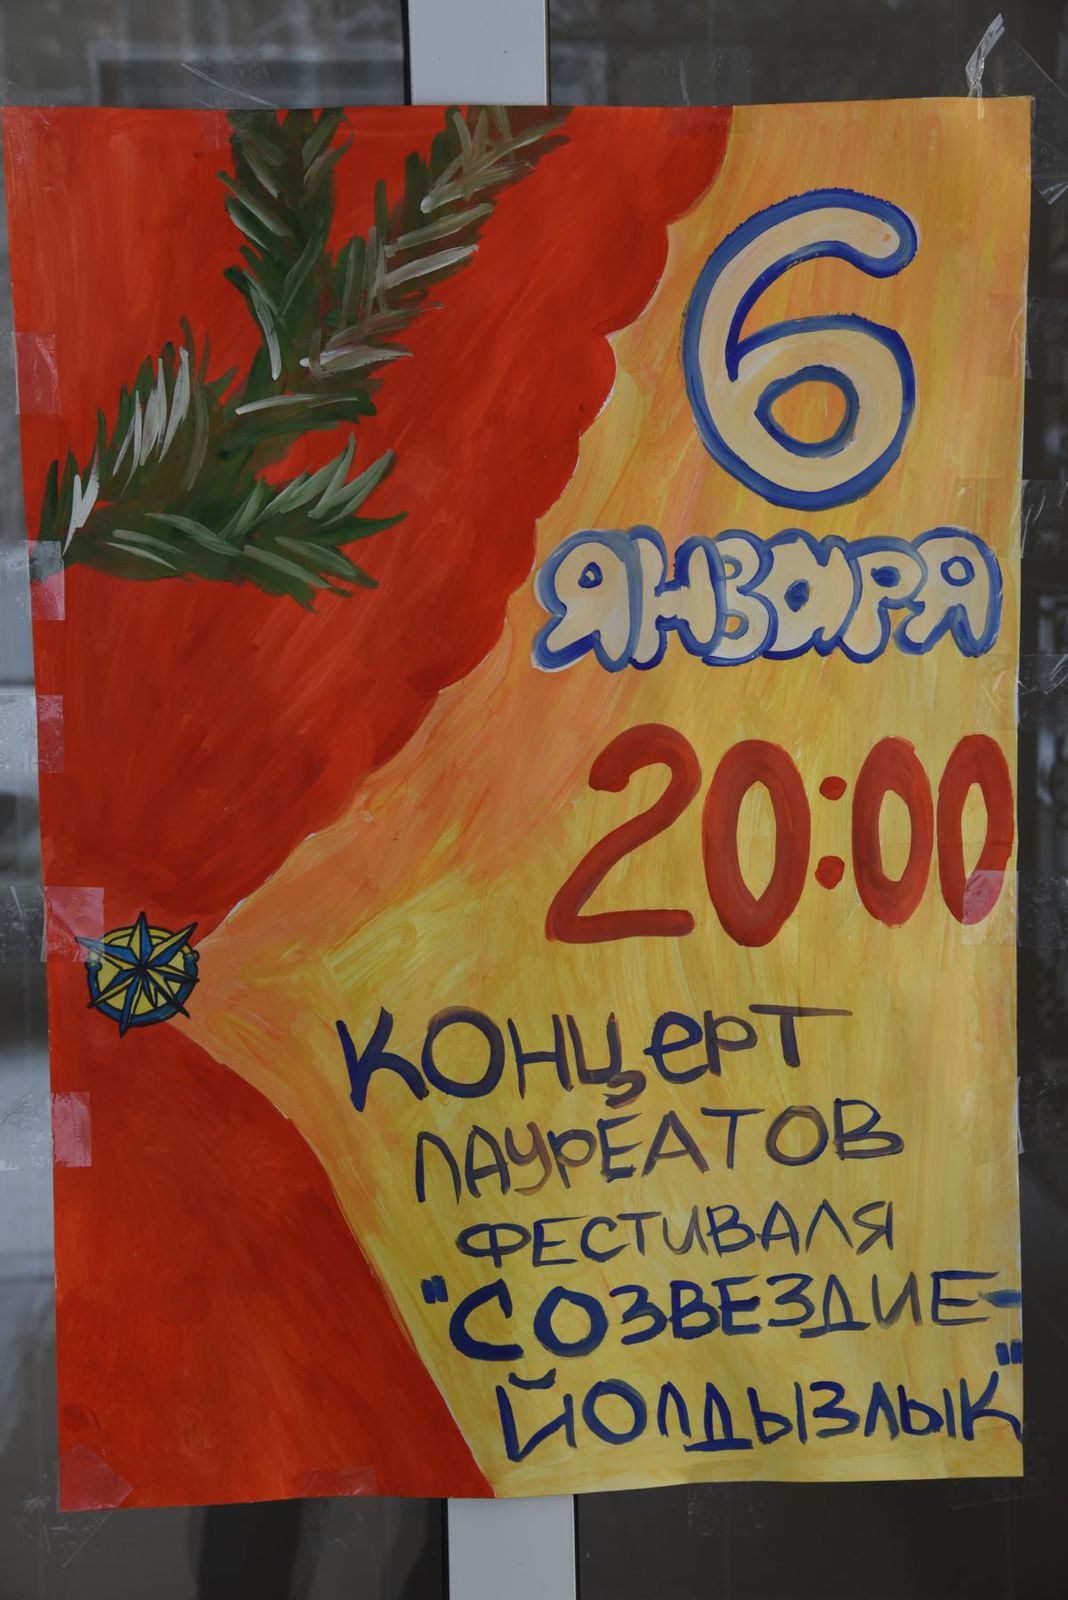 6
января
20:00
концерт
лауреатов
фестиваля
"Созвездие-
Йолдызлык"